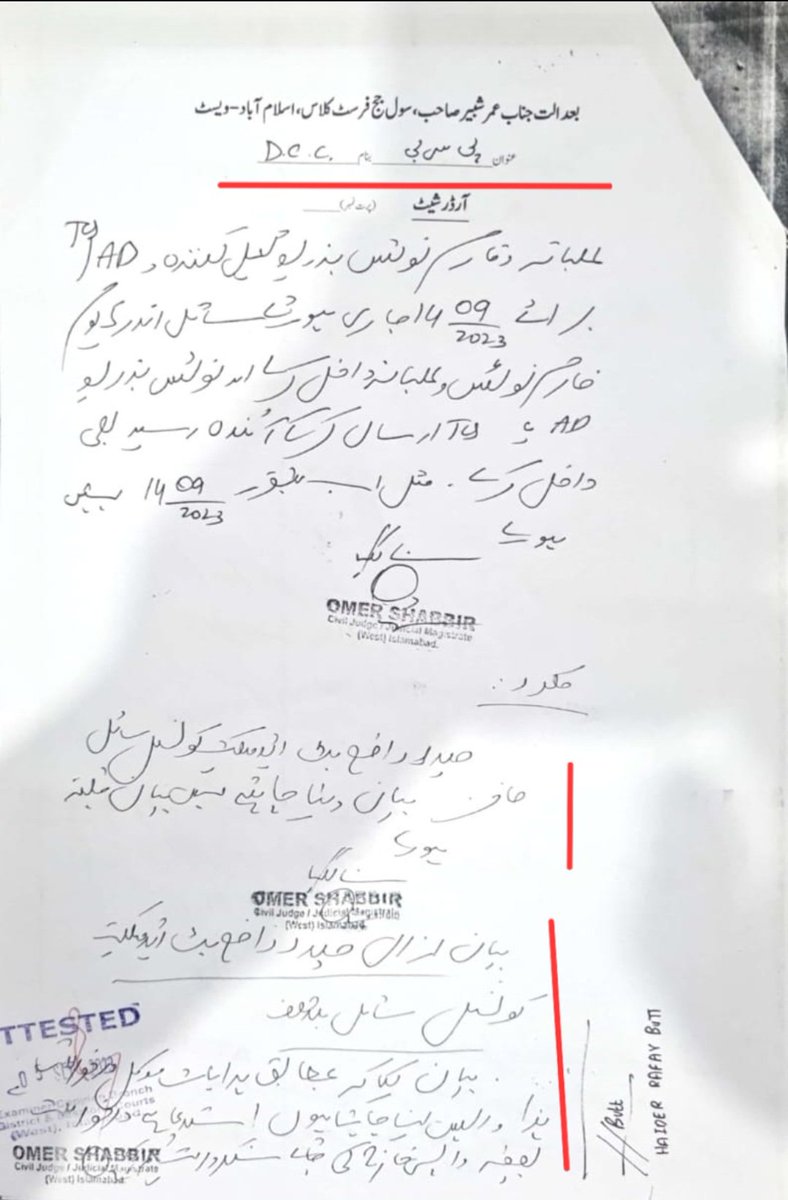 بعدالت جناب عمر شبیر صاحب، سول جج فرسٹ کلاس، اسلام آباد-ویسٹ
عنوان پی سی بی بنام D.C.C.
آرڈر شیٹ
طلبانہ و فارم نوٹس بذریعہ تعمیل کنندہ و AD
برائے 14 09/2023 جاری ہووے سائل اندر یوم
فارم نوٹس و طلبانہ داخل کرے اور نوٹس بذریعہ
AD یا TCS ارسال کر کے آئندہ رسید بھی
داخل کرے۔ مثل اب بتقرر 14 09/2023 پیش
ہووے
سنایا گیا
OMER SHABBIR
Civil Judge / Judicial Magistrate
(West) Islamabad.
مکرر:
حیدر رافع بٹ ایڈووکیٹ کونسل سائل
حاضر بیان دینا چاہتے ہیں بیان قلمبند
ہووے
سنایا گیا
OMER SHABBIR
Civil Judge / Judicial Magistrate
(West) Islamabad.
بیان ازاں حیدر رافع بٹ ایڈووکیٹ
کونسل سائل بلاحلف
بیان کیا کہ مطابق ہدایات موکل درخواست
ہذا واپس لینا چاہتا ہوں استدعا ہے
بصیغہ واپسی خارج کی جائے
TTESTED
OMER SHABBIR
Civil Judge / Judicial Magistrate
(West) Islamabad.
Butt
HAIDER RAFAY BUTT